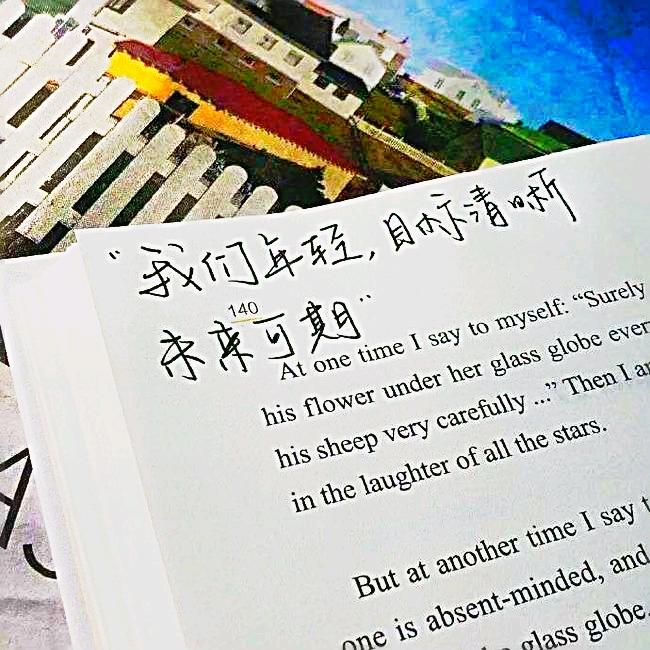 "我们年轻,目标清晰
140
未来可期"
At one time I say to myself: "Surely
his flower under her glass globe ever
his sheep very carefully ..." Then I a
in the laughter of all the stars.
But at another time I say t
one is absent-minded, and
glass globe.